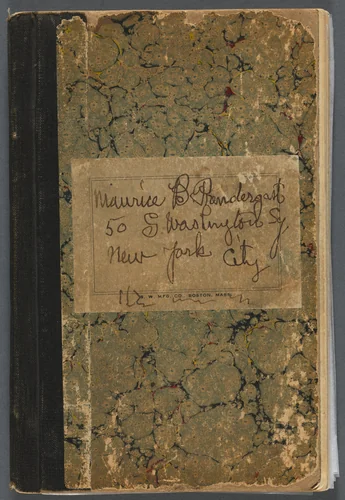 Maurice B. Pendergast
50 S. Washington Sq
New York City
MFG. CO. BOSTON, MASS.